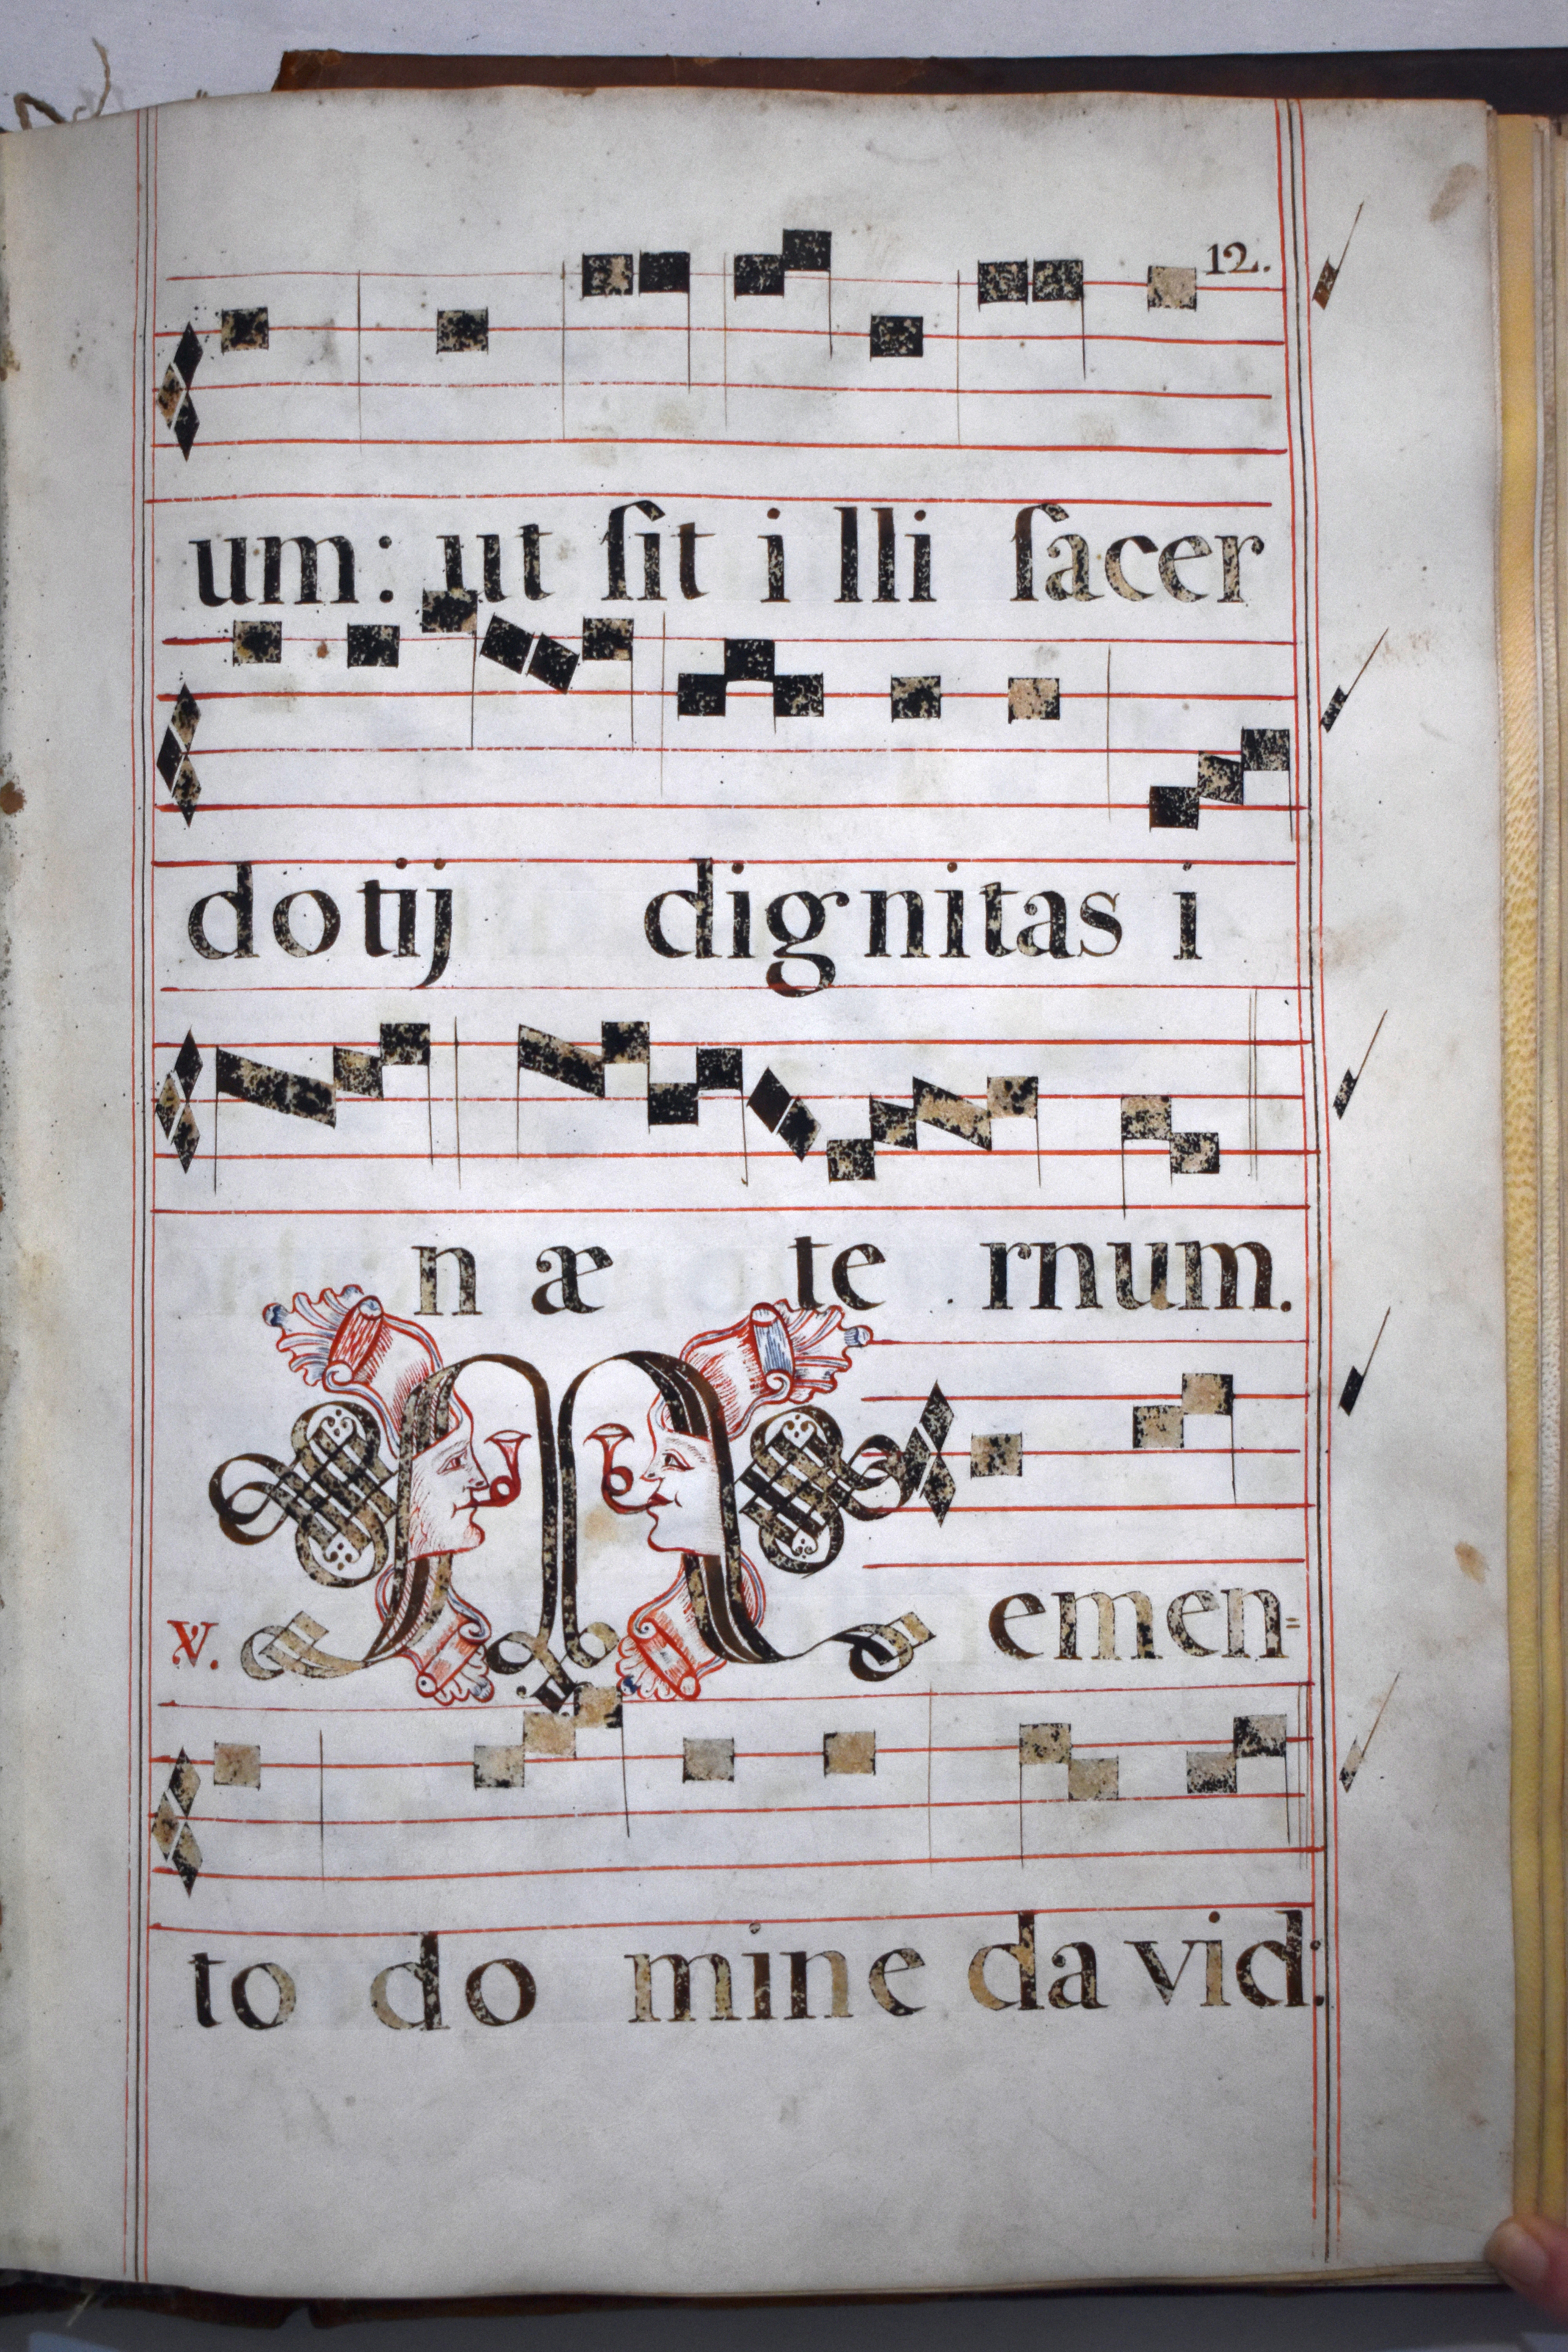 12.
um: ut ſit i lli ſacer
dotij dignitas i
n æ te rnum.
V. M emen=
to do mine da vid: